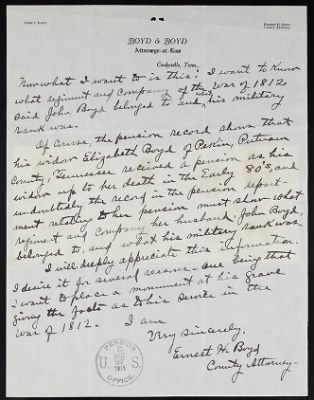 BOYD & BOYD
Attorneys-at-Law
Cookeville, Tenn.,
Now what I want to is this: I want to know
what regiment and Company of the war of 1812,
said John Boyd belonged to and, his military
rank was.
Of Course, the pension record shows that
his widow Elizabeth Boyd of Peskin, Putnam
County, Tennessee received a pension as his
widow up to her death in the Early 80's, and
undoubtedly the record in the pension depart-
ment relating to her pension must show what
regiment and Company her husband, John Boyd,
belonged to, and what his military rank was.
I will deeply appreciate this information.
I desire it for several reasons - one being that
I want to place a monument at his grave
giving the facts as to his service in the
War of 1812. I am
Very Sincerely,
Ernest H. Boyd
County Attorney.
PENSION
U. S.
OFFICE.